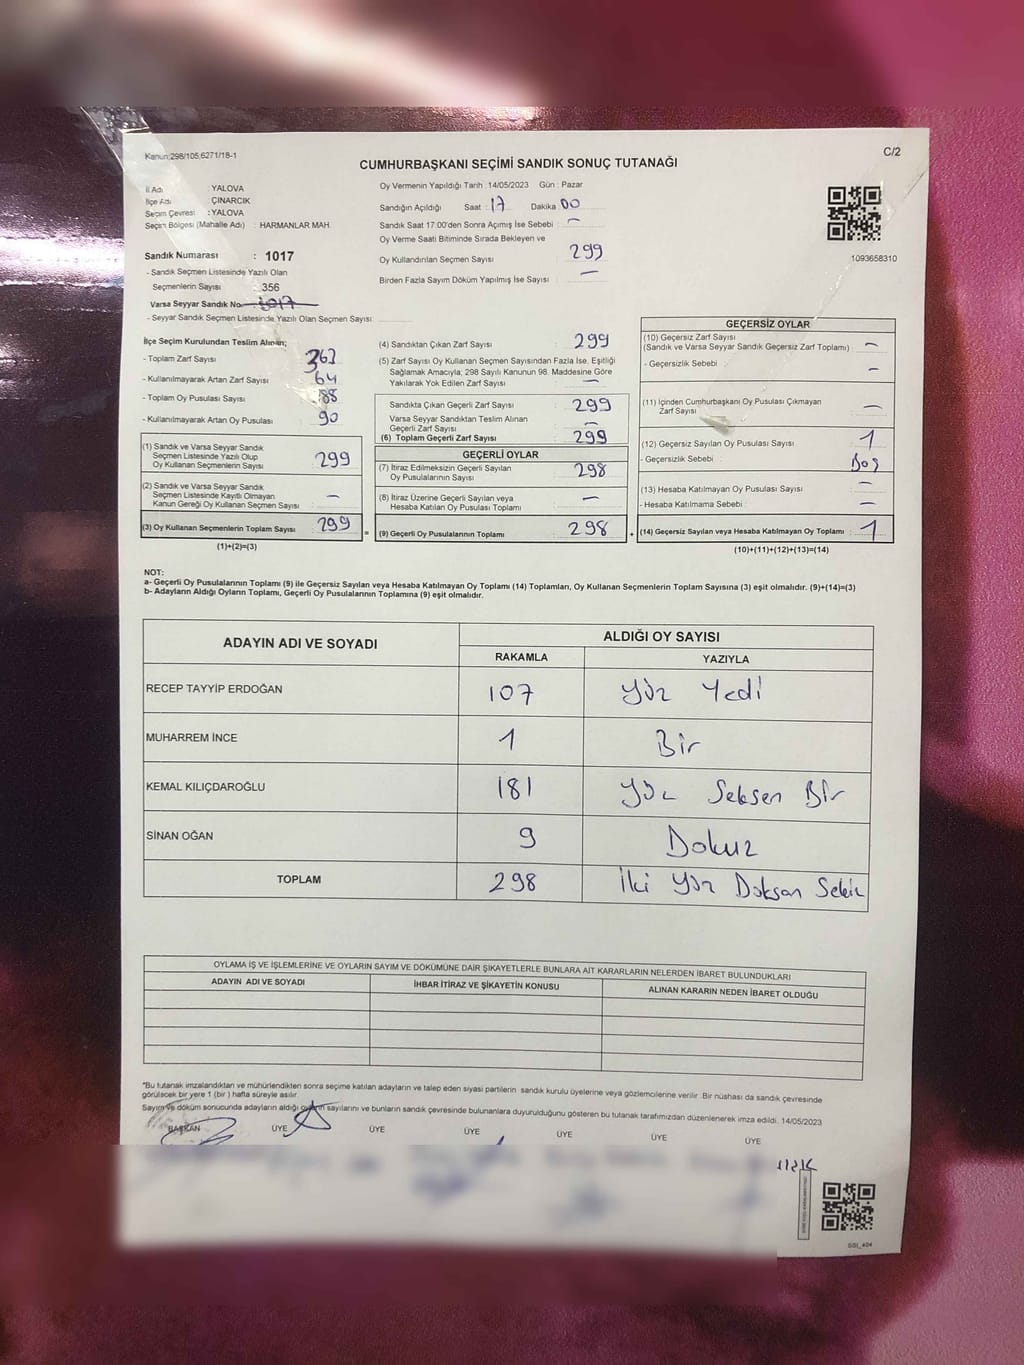 Kanun:298/105;6271/18-1
C/2
CUMHURBAŞKANI SEÇİMİ SANDIK SONUÇ TUTANAĞI
İl Adı : YALOVA
İlçe Adı : ÇINARCIK
Seçim Çevresi : YALOVA
Seçim Bölgesi (Mahalle Adı) : HARMANLAR MAH.
Sandık Numarası : 1017
- Sandık Seçmen Listesinde Yazılı Olan
Seçmenlerin Sayısı : 356
Varsa Seyyar Sandık No : 1017
- Seyyar Sandık Seçmen Listesinde Yazılı Olan Seçmen Sayısı:
Oy Vermenin Yapıldığı Tarih : 14/05/2023 Gün : Pazar
Sandığın Açıldığı Saat : 17 Dakika 00
Sandık Saat 17.00'den Sonra Açımış İse Sebebi : -
Oy Verme Saati Bitiminde Sırada Bekleyen ve
Oy Kullandırılan Seçmen Sayısı : 299
Birden Fazla Sayım Döküm Yapılmış İse Sayısı : -
1093658310
İlçe Seçim Kurulundan Teslim Alınan;
- Toplam Zarf Sayısı : 363
- Kullanılmayarak Artan Zarf Sayısı : 64
- Toplam Oy Pusulası Sayısı : 88
- Kullanılmayarak Artan Oy Pusulası : 90
(1) Sandık ve Varsa Seyyar Sandık
Seçmen Listesinde Yazılı Olup
Oy Kullanan Seçmenlerin Sayısı : 299
(2) Sandık ve Varsa Seyyar Sandık
Seçmen Listesinde Kayıtlı Olmayan
Kanun Gereği Oy Kullanan Seçmen Sayısı : -
(3) Oy Kullanan Seçmenlerin Toplam Sayısı : 299
(1)+(2)=(3)
(4) Sandıktan Çıkan Zarf Sayısı : 299
(5) Zarf Sayısı Oy Kullanan Seçmen Sayısından Fazla İse, Eşitliği
Sağlamak Amacıyla; 298 Sayılı Kanunun 98. Maddesine Göre
Yakılarak Yok Edilen Zarf Sayısı : -
Sandıkta Çıkan Geçerli Zarf Sayısı : 299
Varsa Seyyar Sandıktan Teslim Alınan
Geçerli Zarf Sayısı : -
(6) Toplam Geçerli Zarf Sayısı : 299
GEÇERLİ OYLAR
(7) İtiraz Edilmeksizin Geçerli Sayılan
Oy Pusulalarının Sayısı : 298
(8) İtiraz Üzerine Geçerli Sayılan veya
Hesaba Katılan Oy Pusulası Toplamı : -
= (9) Geçerli Oy Pusulalarının Toplamı : 298
GEÇERSİZ OYLAR
(10) Geçersiz Zarf Sayısı
(Sandık ve Varsa Seyyar Sandık Geçersiz Zarf Toplamı) : -
- Geçersizlik Sebebi : -
(11) İçinden Cumhurbaşkanı Oy Pusulası Çıkmayan
Zarf Sayısı : -
(12) Geçersiz Sayılan Oy Pusulası Sayısı : 1
- Geçersizlik Sebebi : Boş
(13) Hesaba Katılmayan Oy Pusulası Sayısı : -
- Hesaba Katılmama Sebebi : -
+ (14) Geçersiz Sayılan veya Hesaba Katılmayan Oy Toplamı : 1
(10)+(11)+(12)+(13)=(14)
NOT:
a- Geçerli Oy Pusulalarının Toplamı (9) ile Geçersiz Sayılan veya Hesaba Katılmayan Oy Toplamı (14) Toplamları, Oy Kullanan Seçmenlerin Toplam Sayısına (3) eşit olmalıdır. (9)+(14)=(3)
b- Adayların Aldığı Oyların Toplamı, Geçerli Oy Pusulalarının Toplamına (9) eşit olmalıdır.
ADAYIN ADI VE SOYADI ALDIĞI OY SAYISI
RAKAMLA YAZIYLA
RECEP TAYYİP ERDOĞAN 107 Yüz Yedi
MUHARREM İNCE 1 Bir
KEMAL KILIÇDAROĞLU 181 Yüz Seksen Bir
SİNAN OĞAN 9 Dokuz
TOPLAM 298 İki Yüz Doksan Sekiz
OYLAMA İŞ VE İŞLEMLERİNE VE OYLARIN SAYIM VE DÖKÜMÜNE DAİR ŞİKAYETLERLE BUNLARA AİT KARARLARIN NELERDEN İBARET BULUNDUKLARI
ADAYIN ADI VE SOYADI İHBAR İTİRAZ VE ŞİKAYETİN KONUSU ALINAN KARARIN NEDEN İBARET OLDUĞU
*Bu tutanak imzalandıktan ve mühürlendikten sonra seçime katılan adayların ve talep eden siyasi partilerin sandık kurulu üyelerine veya gözlemcilerine verilir. Bir nüshası da sandık çevresinde
görülecek bir yere 1 (bir) hafta süreyle asılır.
Sayım ve döküm sonucunda adayların aldığı oyların sayılarını ve bunların sandık çevresinde bulunanlara duyurulduğunu gösteren bu tutanak tarafımızdan düzenlenerek imza edildi. 14/05/2023
BAŞKAN ÜYE ÜYE ÜYE ÜYE ÜYE ÜYE